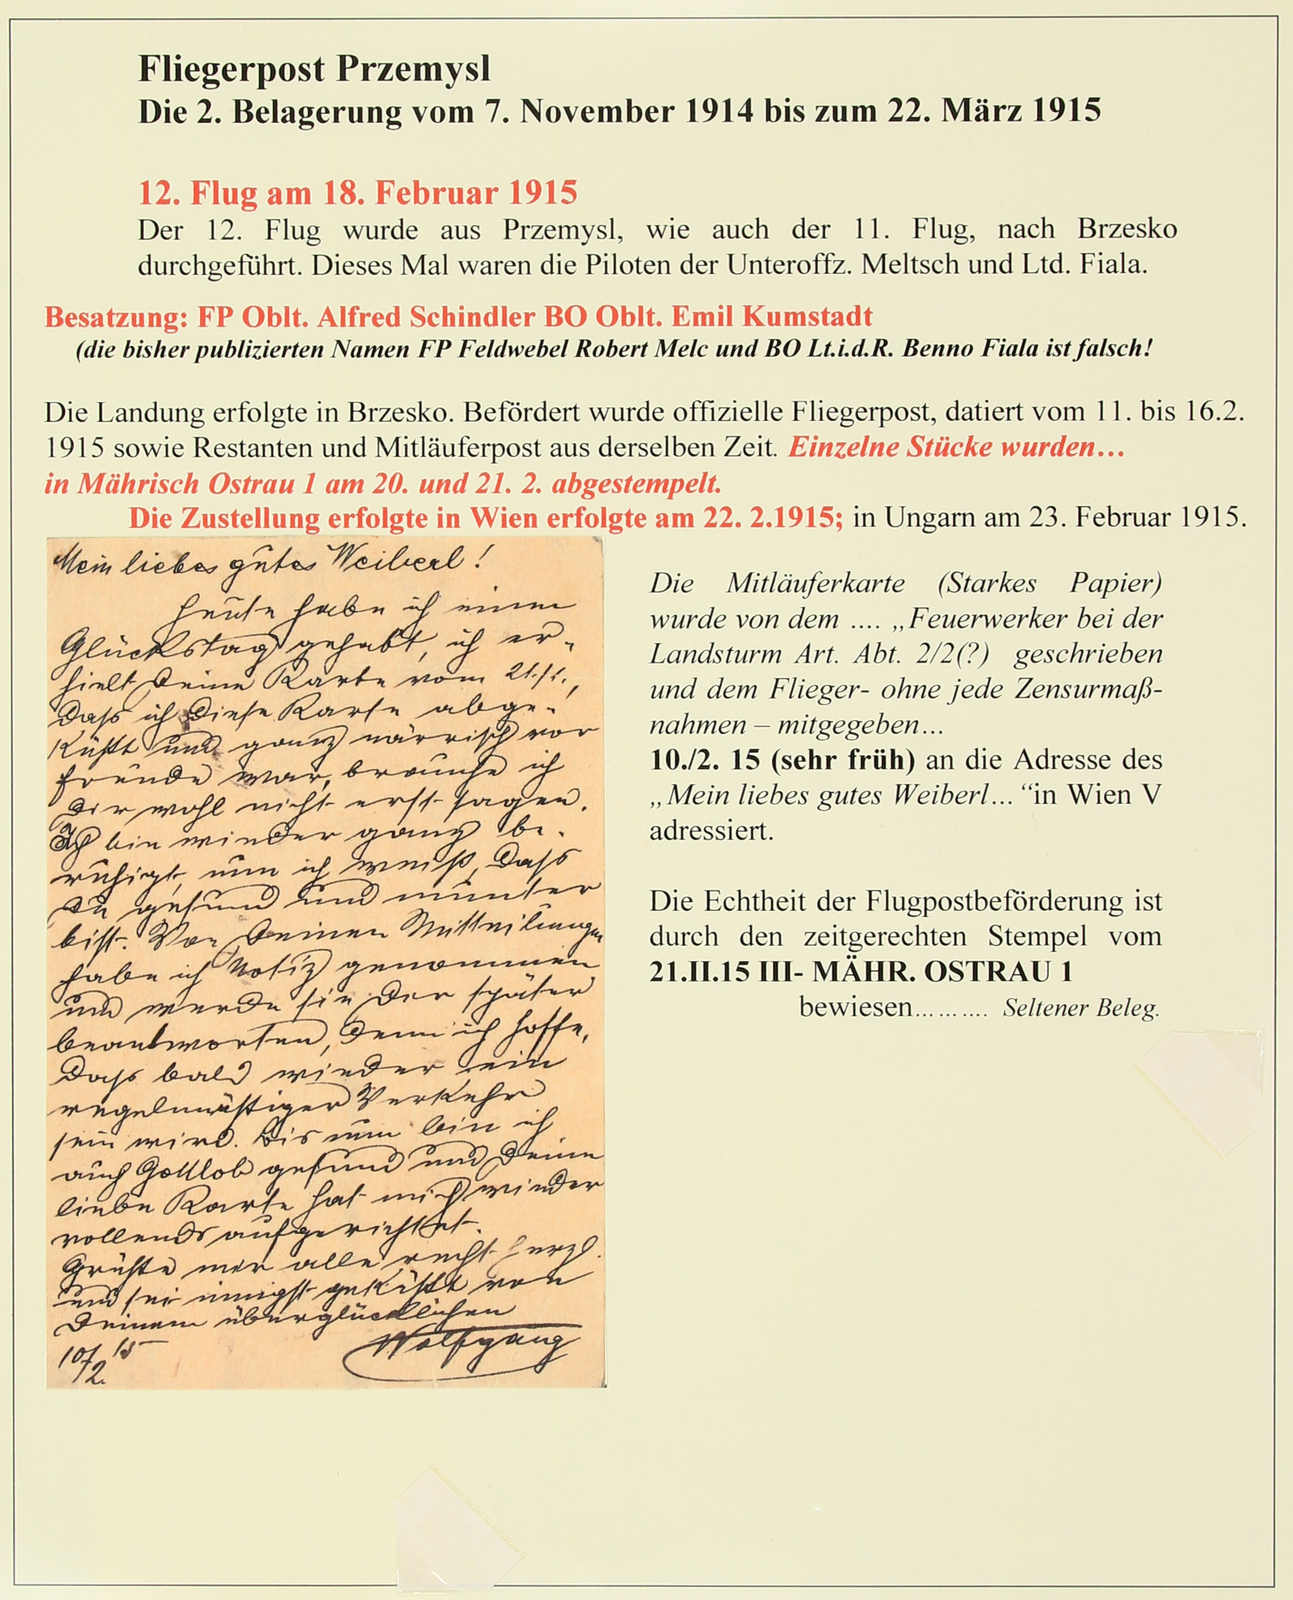 Fliegerpost Przemysl
Die 2. Belagerung vom 7. November 1914 bis zum 22. März 1915
12. Flug am 18. Februar 1915
Der 12. Flug wurde aus Przemysl, wie auch der 11. Flug, nach Brzesko
durchgeführt. Dieses Mal waren die Piloten der Unteroffz. Meltsch und Ltd. Fiala.
Besatzung: FP Oblt. Alfred Schindler BO Oblt. Emil Kumstadt
(die bisher publizierten Namen FP Feldwebel Robert Melc und BO Lt.i.d.R. Benno Fiala ist falsch!
Die Landung erfolgte in Brzesko. Befördert wurde offizielle Fliegerpost, datiert vom 11. bis 16.2.
1915 sowie Restanten und Mitläuferpost aus derselben Zeit. Einzelne Stücke wurden…
in Mährisch Ostrau 1 am 20. und 21. 2. abgestempelt.
Die Zustellung erfolgte in Wien erfolgte am 22. 2.1915; in Ungarn am 23. Februar 1915.
Mein liebes gutes Weiberl!
Heute habe ich einen
Glückstag gehabt, ich er-
hielt Deine Karte vom 21./1.,
dass ich diese Karte abge-
küßt und ganz närrisch vor
Freude war, brauche ich
Dir wohl nicht erst sagen.
Ich bin wieder ganz be-
ruhigt, nun ich weiß, dass
Du gesund und munter
bist. Von Deinen Mitteilungen
habe ich Notiz genommen
und werde sie Dir später
beantworten, denn ich hoffe,
dass bald wieder ein
regelmäßiger Verkehr
sein wird. Bis nun bin ich
auch Gottlob gesund und Deine
liebe Karte hat mich wieder
vollends aufgerichtet.
Grüße mir alle recht herzl.
und sei innigst geküßt von
Deinem überglücklichen
Wolfgang
10/2. 15
Die Mitläuferkarte (Starkes Papier)
wurde von dem …. „Feuerwerker bei der
Landsturm Art. Abt. 2/2(?) geschrieben
und dem Flieger- ohne jede Zensurmaß-
nahmen – mitgegeben…
10./2. 15 (sehr früh) an die Adresse des
„Mein liebes gutes Weiberl…“in Wien V
adressiert.
Die Echtheit der Flugpostbeförderung ist
durch den zeitgerechten Stempel vom
21.II.15 III- MÄHR. OSTRAU 1
bewiesen………. Seltener Beleg.